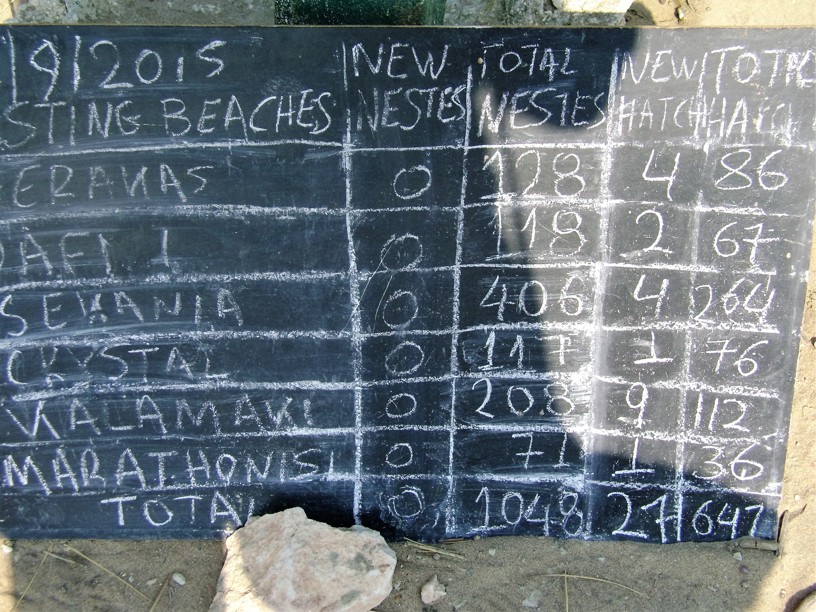 /9/2015 NEW TOTAL NEW TOTAL
STING BEACHES NESTES NESTES HATCH HATCH
GERAKAS 0 128 4 86
DAFNI 0 118 2 67
SEKANIA 0 406 4 264
CRYSTAL 0 117 1 76
KALAMAKI 0 208 9 112
MARATHONISI 0 71 1 36
TOTAL 0 1048 21 641